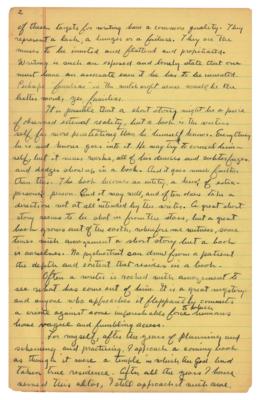 2
of these targets for writing have a common quality. They
represent a lack, a hunger or a failure. They are the
muses to be invited and flattered and propitiated.
Writing is such an exposed and lonely state that one
must have an associate even if he has to be invented.
Perhaps familiar in the witchcraft sense would be the
better word,
It is possible that a short story might be a piece
of observed external reality, but a book is the writer's
self, far more penetrating than he himself knows. Everything
he is and knows goes into it. He may try to conceal him-
self, but it comes works, all of his devices and subterfuges
and dodges showing in a book. And it goes much further
than this. The book becomes an entity, a kind of
person. And it may and often does take a
direction not at all intended by the writer. A great short
story seems to be shot in from the stars, but a great
book grows out of the earth,
times with amazement a short story but a book
is ourselves. No psychiatrist can draw from a patient
the depth and content that resides in a book.
Often a writer is rocked with amazement to
see what has come out of him. It is a great mystery
and anyone who approaches it flippantly commits
a crime against some unfathomable force to which humans
have vague and fumbling access.
For myself, after the years of planning and
scheming and practicing, I approach a coming book
as though it were a temple in which the God had
taken true residence. After all the years I have
served this altar, I still approach it with awe.